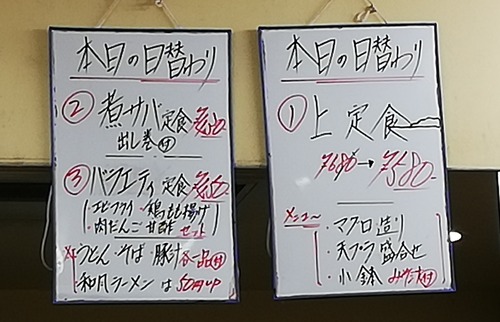 本日の日替わり
② 煮サバ定食 ¥650-
出し巻付
③ バラエティ定食 ¥650-
エビフライ・鶏もも揚げ
・肉だんご甘酢セット
※うどん・そば・豚汁 各一品付
和風ラーメンは50円up
本日の日替わり
① 上定食
¥680→¥580-
メニュー
・マグロ造り
・天プラ盛合せ
・小鉢 みそ汁付